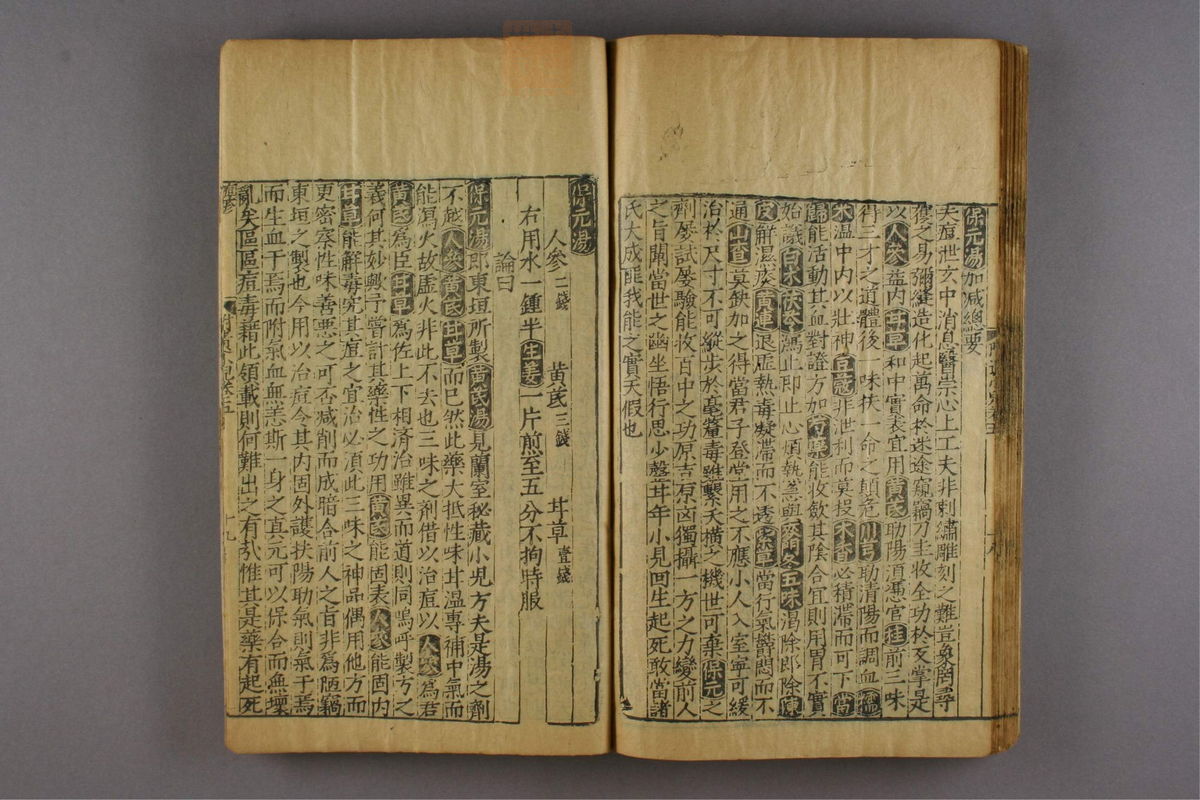 保元湯加減總要
夫痘泄玄中消息醫崇心上工夫非刺繡雕刻之難豈象罔尋
獲之易彌縫造化起萬命於迷途窺竊刀圭收全功於反掌是
以人參益內甘草和中實表宜用黃芪助陽須憑官桂前三味
得三才之道體後一味扶一命之顛危川芎助清陽而調血
米溫中內以壯神豆蔻非泄利而莫投木香必積滯而可下當
歸能活動其血對證方加芍藥能收斂其陰合宜則用胃不實
始議白朮茯苓渴止即止心煩熱兼與麥門冬五味渴除即除陳
皮解濕痰黃連退虛熱毒凝滯而不透紫草當行氣鬱悶而不
通山查莫缺加之得當君子登堂用之不應小人入室寧可緩
治於尺寸不可縱步於毫釐毒雖繫天橫之機世可棄保元之
劑屢試屢驗能收百中之功原吉原凶獨攝一方之力變前人
之旨開當世之幽坐悟行思少盤廿年小見回生起死敢當諸
氏大成匪我能之實天假也
保元湯
人參二錢 黃芪三錢 甘草壹錢
右用水一鍾半生姜一片煎至五分不拘時服
論曰
保元湯即東垣所製黃芪湯見蘭室秘藏小兒方夫是湯之劑
不越人參黃芪甘草而已然此藥大抵性味甘溫專補中氣而
能瀉火故虛火非此不去也三味之劑借以治痘以人參為君
黃芪為臣甘草為佐上下相濟治雖異而道則同嗚呼製方之
義何其妙歟予嘗計其藥性之功用黃芪能固表人參能固內
甘草能解毒究其痘之宜治必須此三味之神品偶用他方而
更密察性味善惡之可否減削而成暗合前人之旨非為陋竊
東垣之製也今用以治痘令其內固外護扶陽助氣則氣于焉
而生血于焉而附氣血無恙斯一身之真元可以保合而無壞
亂矣區區痘毒藉此領載則何難出之有哉惟其是藥有起死
十九